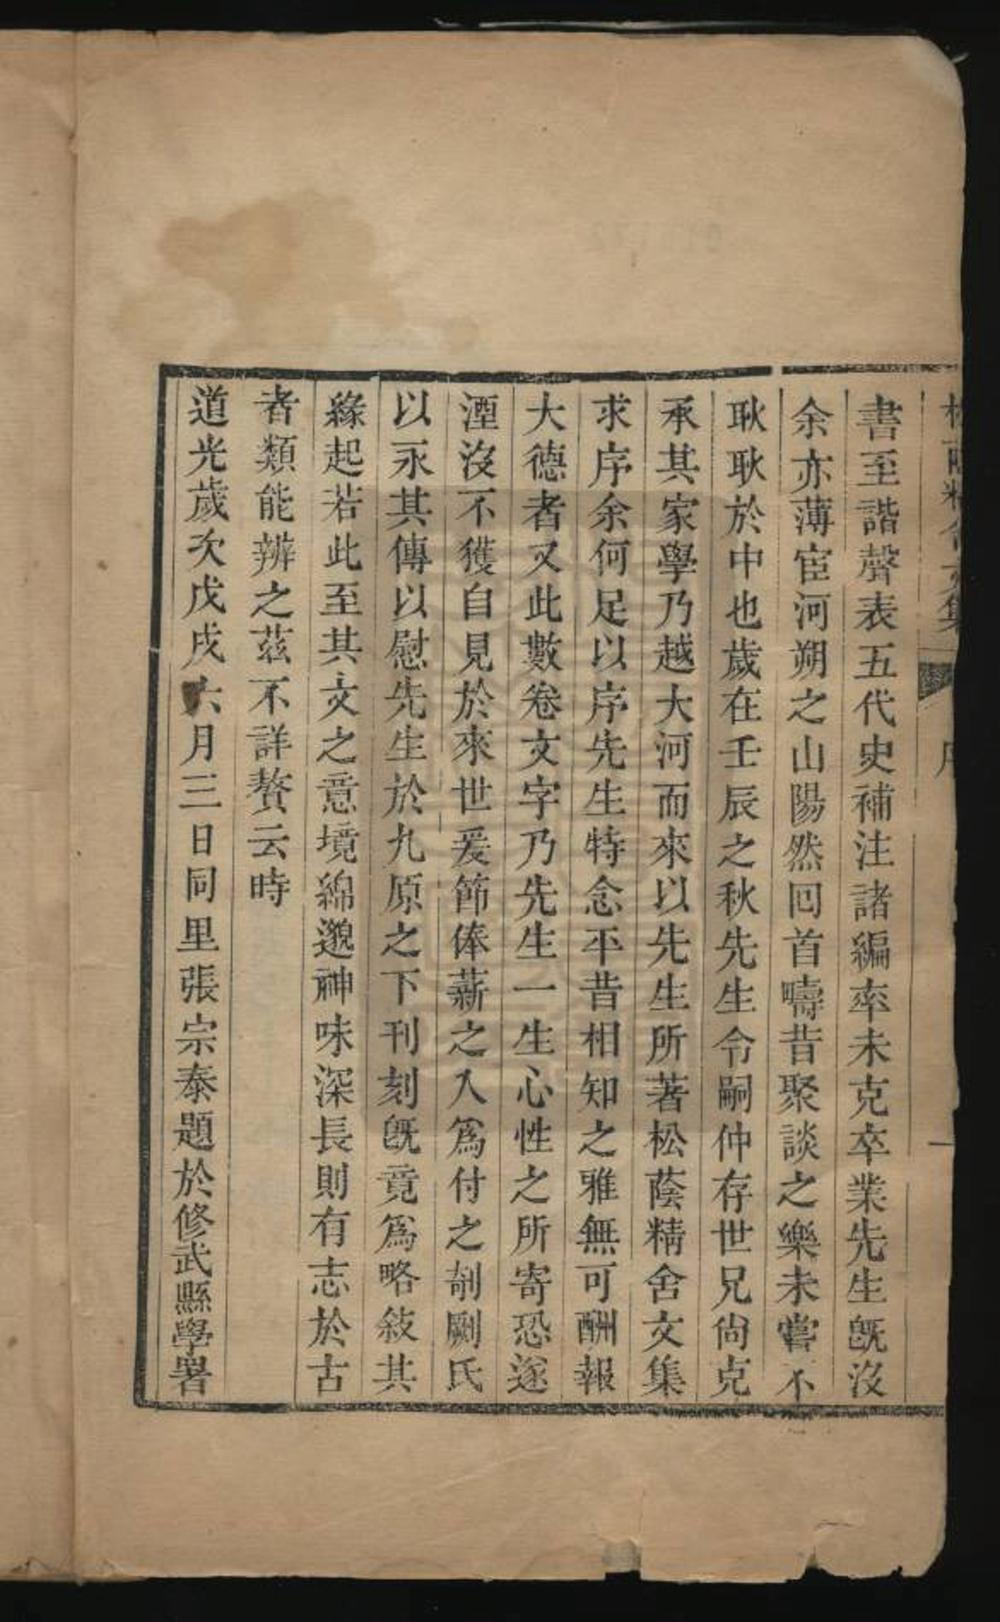 書至諧聲表五代史補注諸編率未克卒業先生旣沒
余亦薄宦河朔之山陽然回首疇昔聚談之樂未嘗不
耿耿於中也歲在壬辰之秋先生令嗣仲存世兄尙克
承其家學乃越大河而來以先生所著松蔭精舍文集
求序余何足以序先生特念平昔相知之雅無可酬報
大德者又此數卷文字乃先生一生心性之所寄恐遂
湮沒不獲自見於來世爰節俸薪之入爲付之剞劂氏
以永其傳以慰先生於九原之下刊刻旣竟爲略敍其
緣起若此至其文之意境綿邈神味深長則有志於古
者類能辨之茲不詳贅云時
道光歲次戊戌六月三日同里張宗泰題於修武縣學署